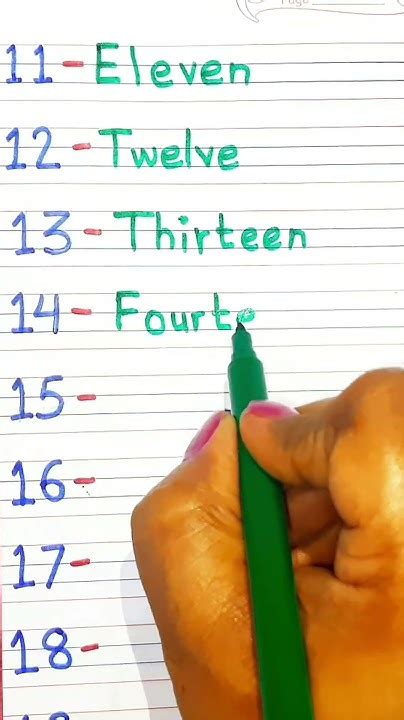 Page
11 - Eleven
12 - Twelve
13 - Thirteen
14 - Fourte
15 -
16 -
17 -
18 -